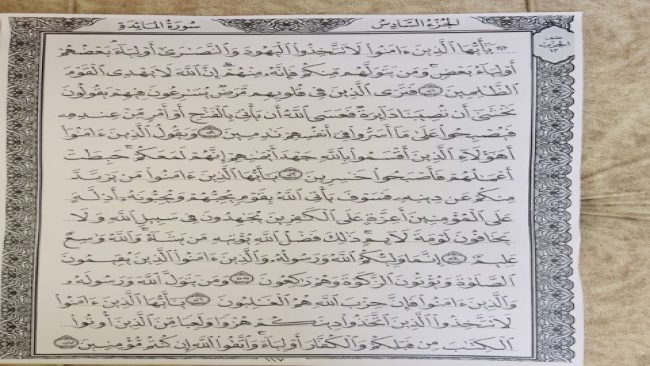 الجزء السادس
سورة المائدة
نصف
الحزب
١٢
۞ يَٰٓأَيُّهَا ٱلَّذِينَ ءَامَنُوا۟ لَا تَتَّخِذُوا۟ ٱلْيَهُودَ وَٱلنَّصَٰرَىٰٓ أَوْلِيَآءَ بَعْضُهُمْ
أَوْلِيَآءُ بَعْضٍ وَمَن يَتَوَلَّهُم مِّنكُمْ فَإِنَّهُۥ مِنْهُمْ إِنَّ ٱللَّهَ لَا يَهْدِى ٱلْقَوْمَ
ٱلظَّٰلِمِينَ ٥١ فَتَرَى ٱلَّذِينَ فِى قُلُوبِهِم مَّرَضٌ يُسَٰرِعُونَ فِيهِمْ يَقُولُونَ
نَخْشَىٰٓ أَن تُصِيبَنَا دَآئِرَةٌ فَعَسَى ٱللَّهُ أَن يَأْتِىَ بِٱلْفَتْحِ أَوْ أَمْرٍ مِّنْ عِندِهِۦ
فَيُصْبِحُوا۟ عَلَىٰ مَآ أَسَرُّوا۟ فِىٓ أَنفُسِهِمْ نَٰدِمِينَ ٥٢ وَيَقُولُ ٱلَّذِينَ ءَامَنُوٓا۟
أَهَٰٓؤُلَآءِ ٱلَّذِينَ أَقْسَمُوا۟ بِٱللَّهِ جَهْدَ أَيْمَٰنِهِمْ إِنَّهُمْ لَمَعَكُمْ حَبِطَتْ
أَعْمَٰلُهُمْ فَأَصْبَحُوا۟ خَٰسِرِينَ ٥٣ يَٰٓأَيُّهَا ٱلَّذِينَ ءَامَنُوا۟ مَن يَرْتَدَّ
مِنكُمْ عَن دِينِهِۦ فَسَوْفَ يَأْتِى ٱللَّهُ بِقَوْمٍ يُحِبُّهُمْ وَيُحِبُّونَهُۥٓ أَذِلَّةٍ
عَلَى ٱلْمُؤْمِنِينَ أَعِزَّةٍ عَلَى ٱلْكَٰفِرِينَ يُجَٰهِدُونَ فِى سَبِيلِ ٱللَّهِ وَلَا
يَخَافُونَ لَوْمَةَ لَآئِمٍ ذَٰلِكَ فَضْلُ ٱللَّهِ يُؤْتِيهِ مَن يَشَآءُ وَٱللَّهُ وَٰسِعٌ
عَلِيمٌ ٥٤ إِنَّمَا وَلِيُّكُمُ ٱللَّهُ وَرَسُولُهُۥ وَٱلَّذِينَ ءَامَنُوا۟ ٱلَّذِينَ يُقِيمُونَ
ٱلصَّلَوٰةَ وَيُؤْتُونَ ٱلزَّكَوٰةَ وَهُمْ رَٰكِعُونَ ٥٥ وَمَن يَتَوَلَّ ٱللَّهَ وَرَسُولَهُۥ
وَٱلَّذِينَ ءَامَنُوا۟ فَإِنَّ حِزْبَ ٱللَّهِ هُمُ ٱلْغَٰلِبُونَ ٥٦ يَٰٓأَيُّهَا ٱلَّذِينَ ءَامَنُوا۟
لَا تَتَّخِذُوا۟ ٱلَّذِينَ ٱتَّخَذُوا۟ دِينَكُمْ هُزُوًا وَلَعِبًا مِّنَ ٱلَّذِينَ أُوتُوا۟
ٱلْكِتَٰبَ مِن قَبْلِكُمْ وَٱلْكُفَّارَ أَوْلِيَآءَ وَٱتَّقُوا۟ ٱللَّهَ إِن كُنتُم مُّؤْمِنِينَ ٥٧
١١٧